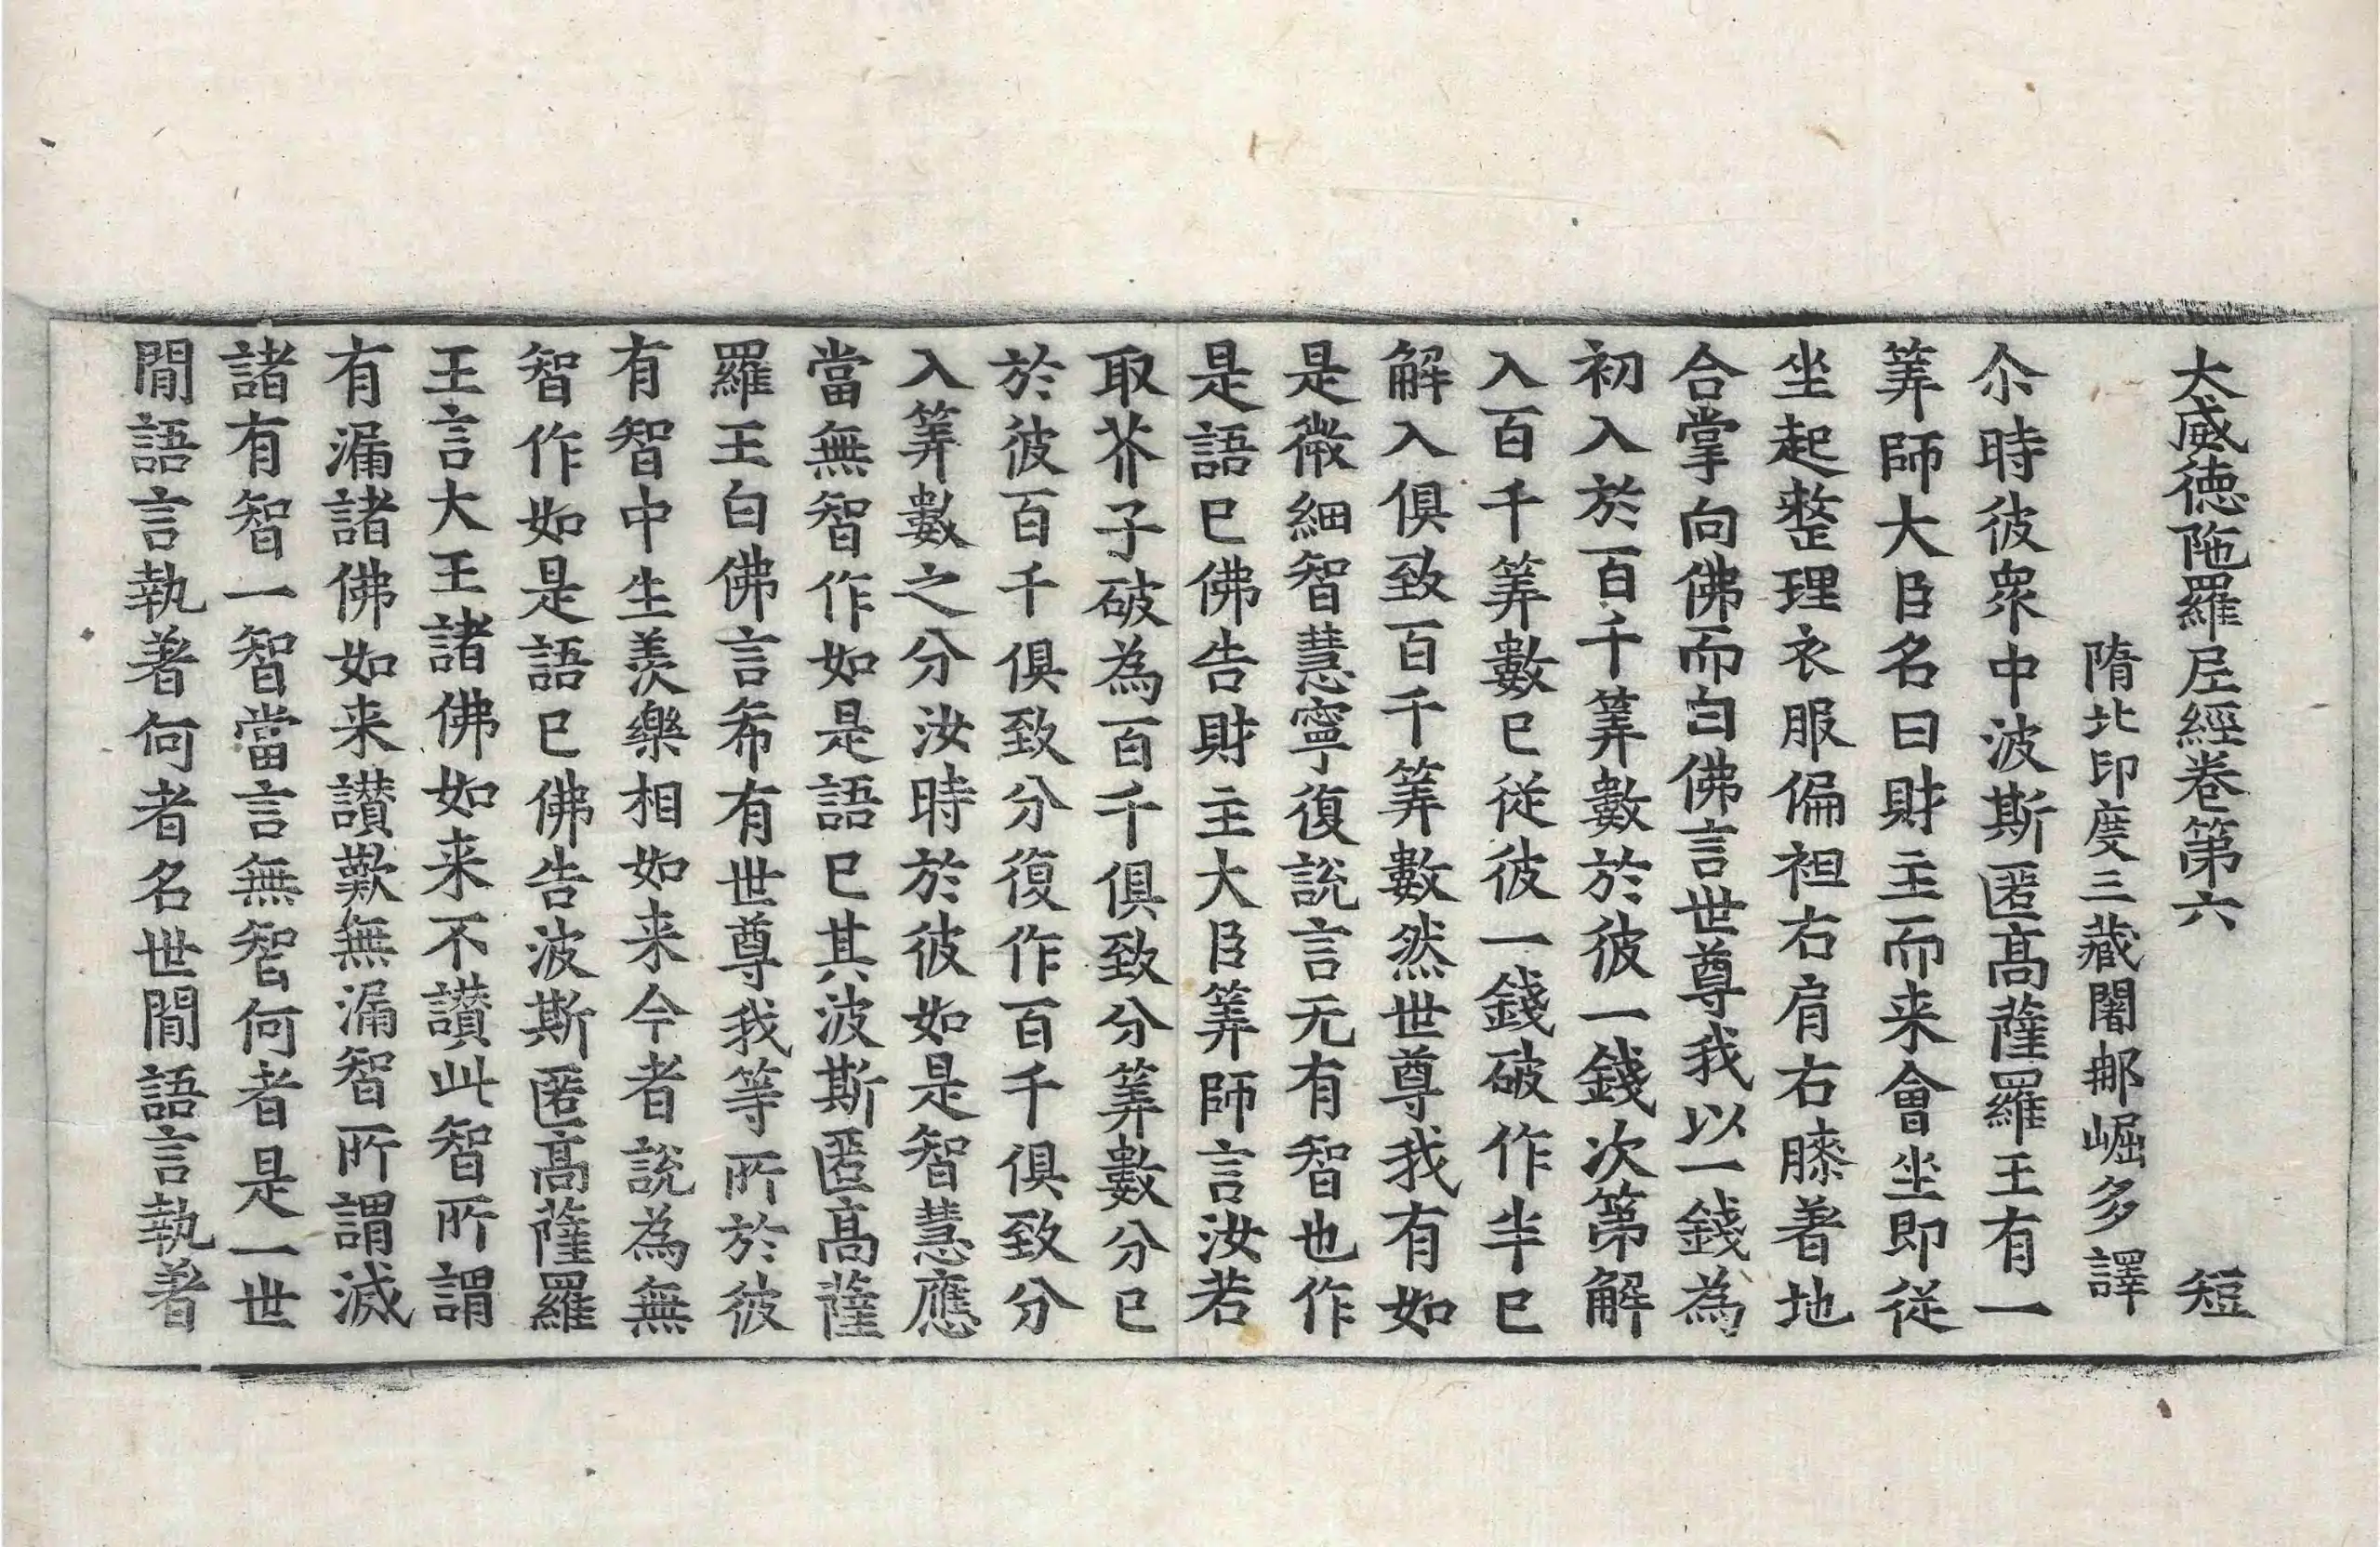 大威德陁羅尼經卷第六　短
隋北印度三藏闍那崛多譯
尒時彼衆中波斯匿髙薩羅王有一
筭師大臣名曰財主而来會坐即從
坐起整理衣服偏袒右肩右膝著地
合掌向佛而白佛言世尊我以一錢為
初入於百千筭數於彼一錢次第解
入百千筭數已從彼一錢破作半已
解入俱致百千筭數然世尊我有如
是微細智慧寧復說言无有智也作
是語已佛告財主大臣筭師言汝若
取芥子破為百千俱致分筭數分已
於彼百千俱致分復作百千俱致分
入筭數之分汝時於彼如是智慧應
當無智作如是語已其波斯匿髙薩
羅王白佛言希有世尊我等所於彼
有智中生羨樂相如来今者說為無
智作如是語已佛告波斯匿髙薩羅
王言大王諸佛如来不讃此智所謂
有漏諸佛如来讃歎無漏智所謂滅
諸有智一智當言無智何者是一世
閒語言執著何者名世閒語言執著